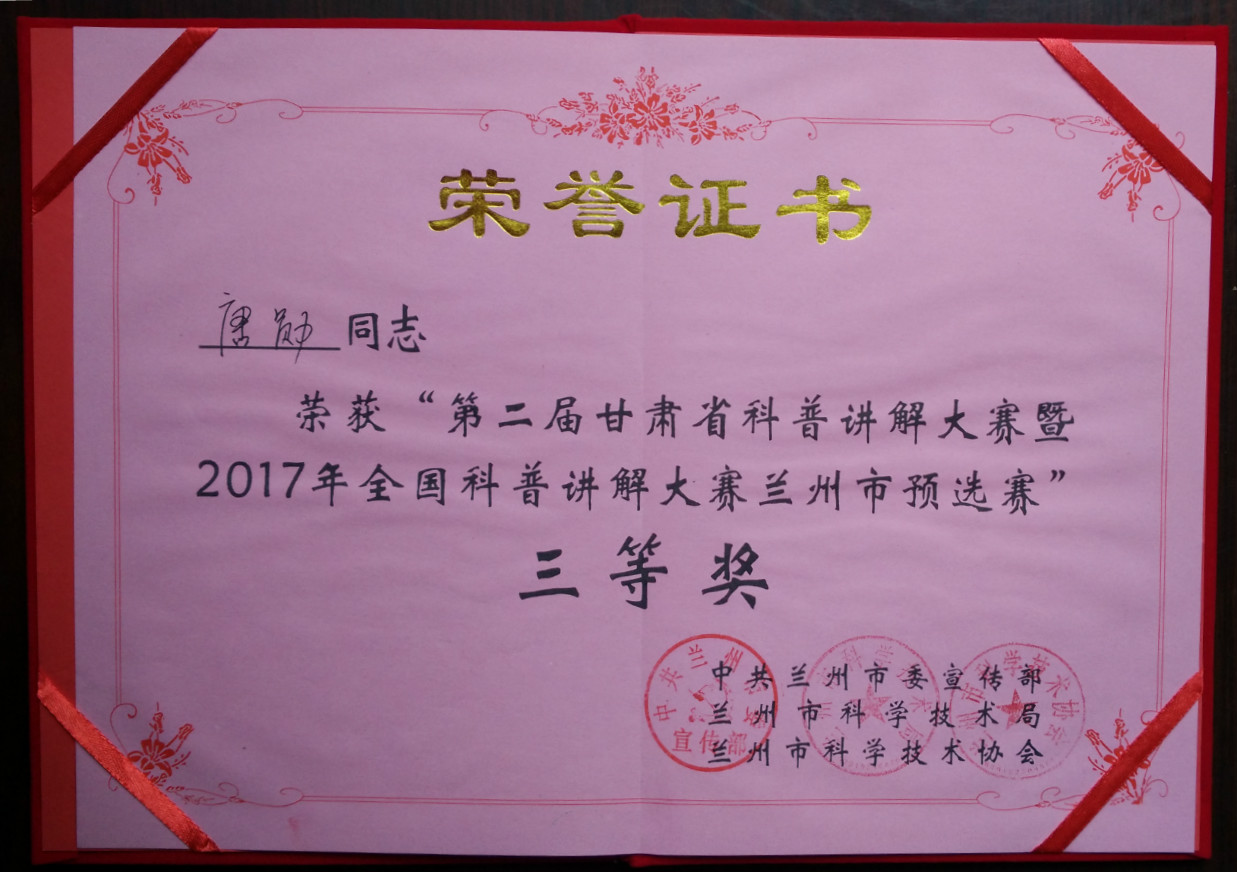 荣誉证书
唐勋同志
荣获“第二届甘肃省科普讲解大赛暨
2017年全国科普讲解大赛兰州市预选赛”
三等奖
中共兰州市委宣传部
兰州市科学技术局
兰州市科学技术协会